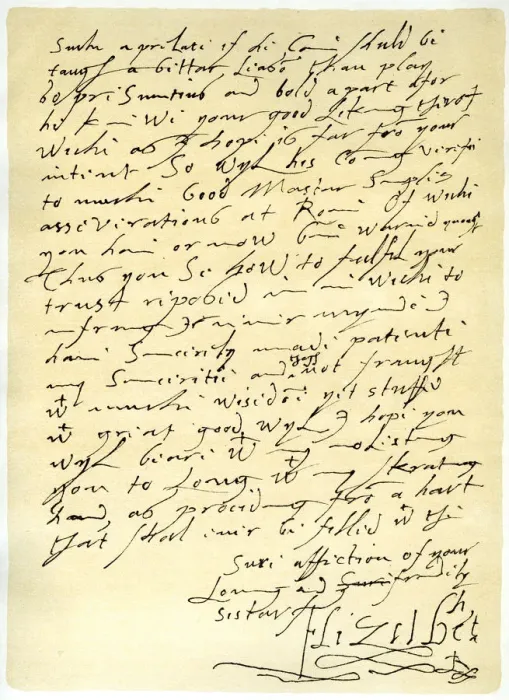 Suche a prelate if he come shuld be
taught a bettar leason than play
so presumtius and bold a part afor
he knewe your good liking therof
wiche as I hope is far fro your
intent So wyl his coming verefie
to muche Good Mastar Simples
asseverations at Rome Of wiche
you have or now bene warned ynough
Thus you se how to fulfil your
trust reposed in me wiche to
infring I never mynde I
have sincerely made patente
my sinceritie and thogh not fraught
wt muche wisedome yet stuffed
wt great good wyl I hope you
wyl beare wt my molesting
you to long wt my skrating
hand, as proceding fro a hart
that shal ever be filled wt the
sure affection of your
Loving and frendely
sistar
Elizabeth R